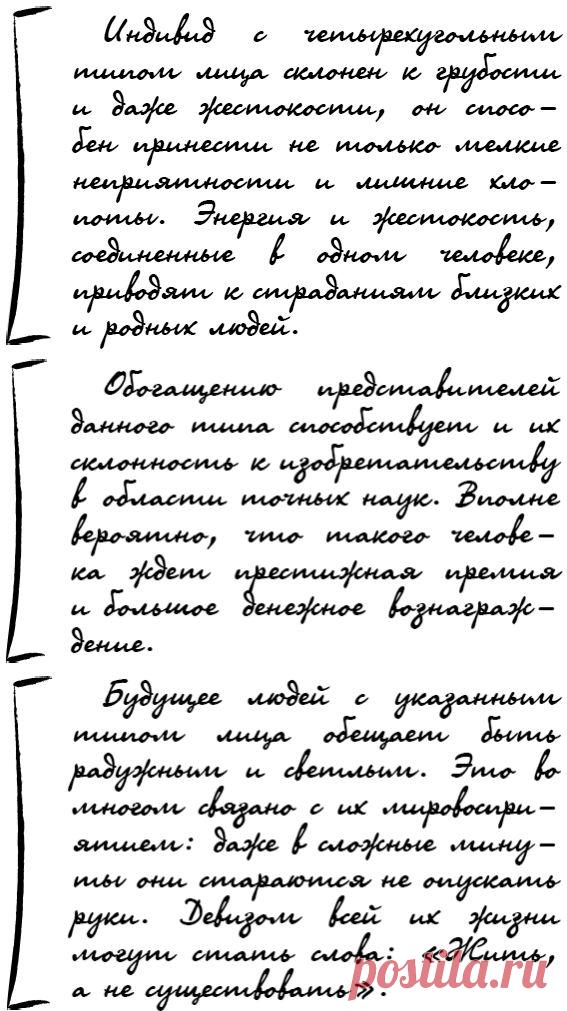 Индивид с четырехугольным
типом лица склонен к грубости
и даже жестокости, он спосо-
бен принести не только мелкие
неприятности и лишние хло-
поты. Энергия и жестокость,
соединенные в одном человеке,
приводят к страданиям близких
и родных людей.
Обогащению представителей
данного типа способствует и их
склонность к изобретательству
в области точных наук. Вполне
вероятно, что такого челове-
ка ждет престижная премия
и большое денежное вознаграж-
дение.
Будущее людей с указанным
типом лица обещает быть
радужным и светлым. Это во
многом связано с их мировоспри-
ятием: даже в сложные мину-
ты они стараются не опускать
руки. Девизом всей их жизни
могут стать слова: «Жить,
а не существовать».
postila.ru